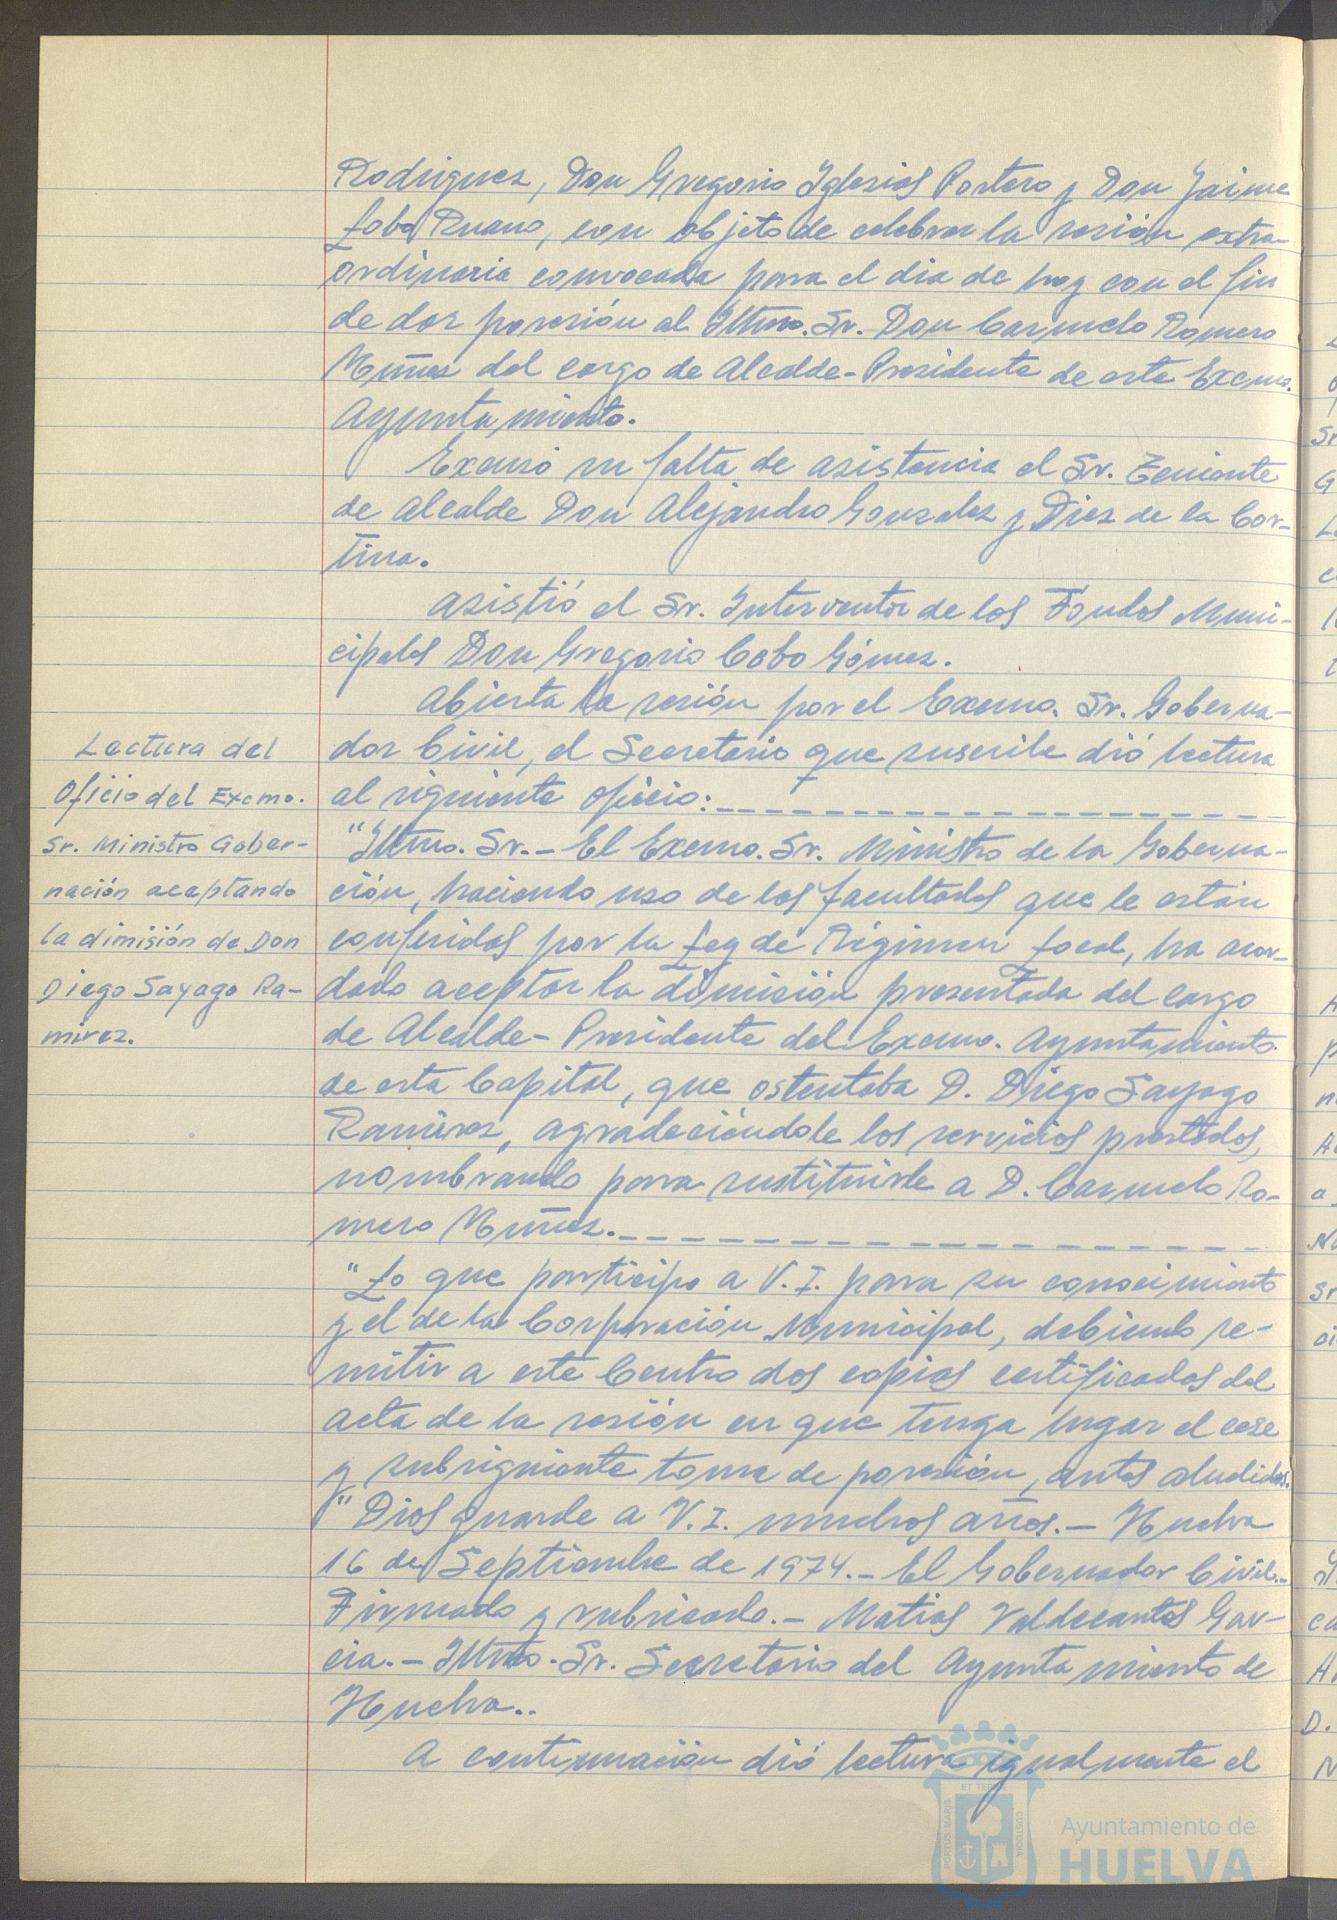 Rodriguez, Don Gregorio Iglesias Portero y Don Jaime
Lobo Ruano, con objeto de celebrar la sesión extra-
ordinaria convocada para el dia de hoy con el fin
de dar posesión al Iltmo. Sr. Don Carmelo Romero
Núñez del cargo de Alcalde-Presidente de este Excmo.
Ayuntamiento.
Excusó su falta de asistencia el Sr. Teniente
de Alcalde Don Alejandro Gonzalez y Diez de la Cor-
tina.
Asistió el Sr. Interventor de los Fondos Muni-
cipales Don Gregorio Cobo Gómez.
Abierta la sesión por el Excmo. Sr. Goberna-
dor Civil, el Secretario que suscribe dió lectura
al siguiente oficio:
Lectura del
Oficio del Excmo.
Sr. Ministro Gober-
nación aceptando
la dimisión de Don
Diego Sayago Ra-
mirez.
"Iltmo. Sr.- El Excmo. Sr. Ministro de la Goberna-
ción, haciendo uso de las facultades que le están
conferidas por la Ley de Régimen Local, ha acor-
dado aceptar la dimisión presentada del cargo
de Alcalde-Presidente del Excmo. Ayuntamiento
de esta Capital, que ostentaba D. Diego Sayago
Ramirez, agradeciéndole los servicios prestados,
nombrando para sustituirle a D. Carmelo Ro-
mero Núñez.
"Lo que participo a V.I. para su conocimiento
y el de la Corporación Municipal, debiendo re-
mitir a este Centro dos copias certificadas del
acta de la sesión en que tenga lugar el cese
y subsiguiente toma de posesión, antes aludidas.
"Dios guarde a V.I. muchos años.- Huelva
16 de Septiembre de 1974.- El Gobernador Civil.-
Firmado y rubricado.- Matias Valdecantos Gar-
cia.- Iltmo. Sr. Secretario del Ayuntamiento de
Huelva..
A continuación dió lectura igualmente el
PORTUS MARIS
ET TERRAE
CUSTODIA
Ayuntamiento de
HUELVA